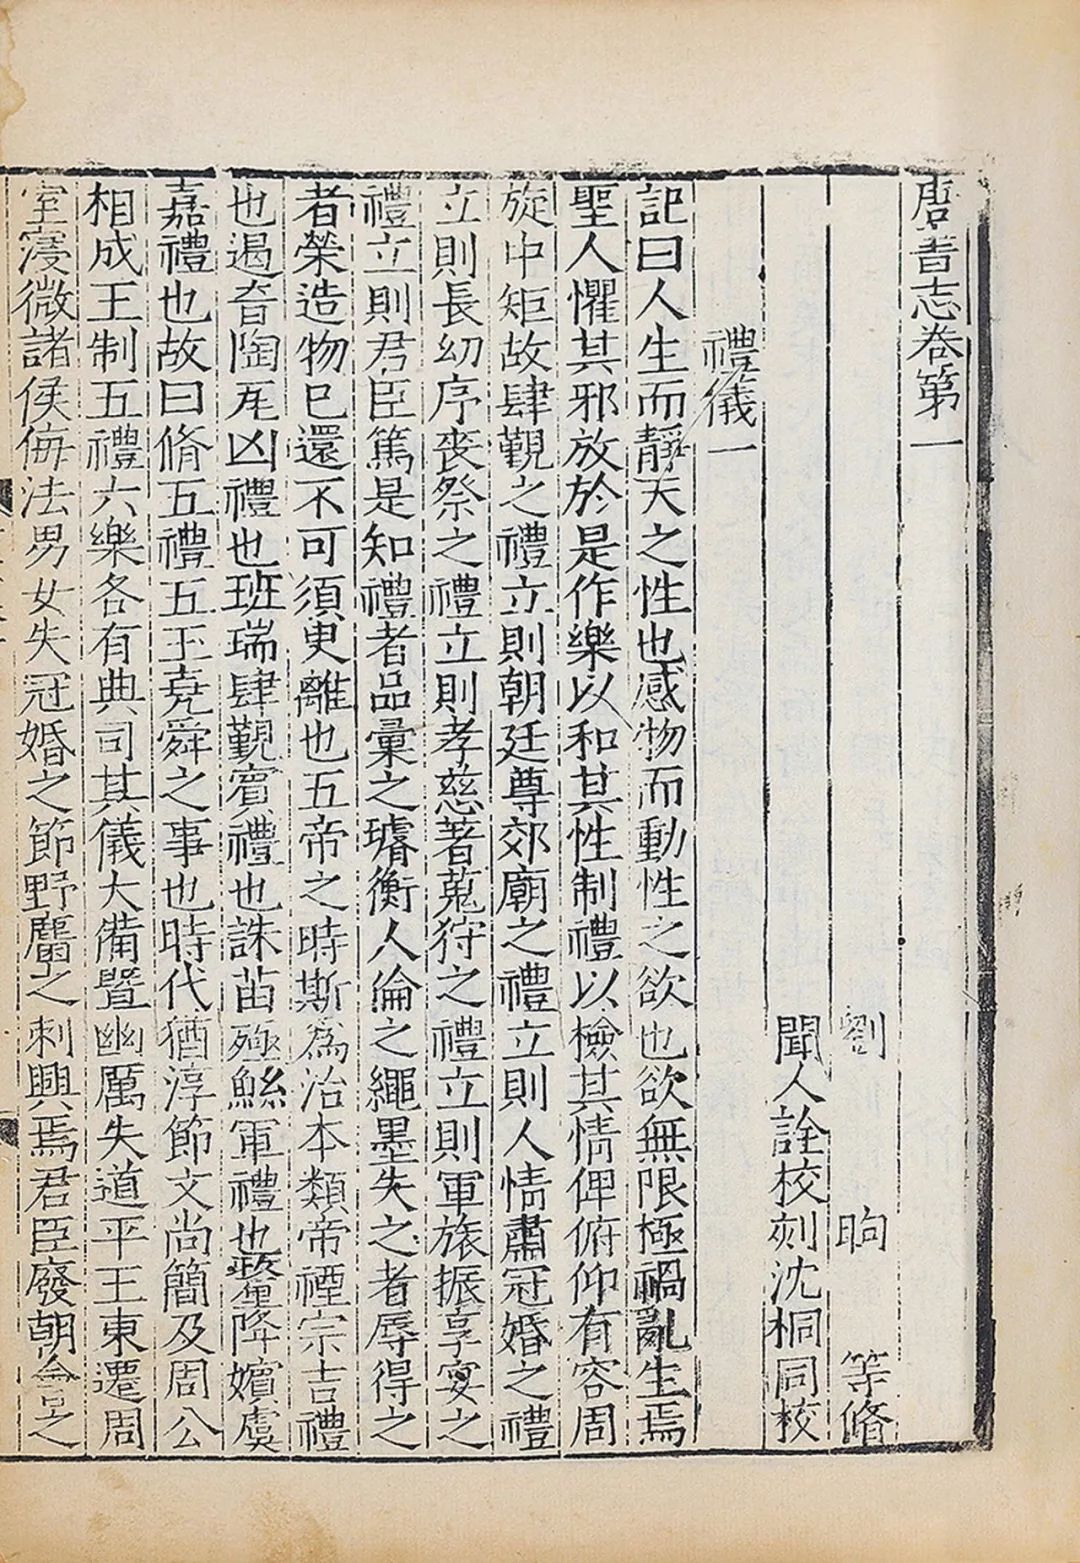 唐書志卷第一
劉 昫 等脩
聞人詮校刻沈桐同校
禮儀一
記曰人生而靜天之性也感物而動性之欲也欲無限極禍亂生焉
聖人懼其邪放於是作樂以和其性制禮以檢其情俾俯仰有容周
旋中矩故肆覲之禮立則朝廷尊郊廟之禮立則人情肅冠婚之禮
立則長幼序喪祭之禮立則孝慈著蒐狩之禮立則軍旅振享宴之
禮立則君臣篤是知禮者品彙之璿衡人倫之繩墨失之者辱得之
者榮造物已還不可須臾離也五帝之時斯為治本類帝禋宗吉禮
也遏音陶瓦凶禮也班瑞肆覲賓禮也誅苗殛鯀軍禮也釐降嬪虞
嘉禮也故曰脩五禮五玉堯舜之事也時代猶淳節文尚簡及周公
相成王制五禮六樂各有典司其儀大備暨幽厲失道平王東遷周
室寖微諸侯侮法男女失冠婚之節野麕之刺興焉君臣廢朝會之